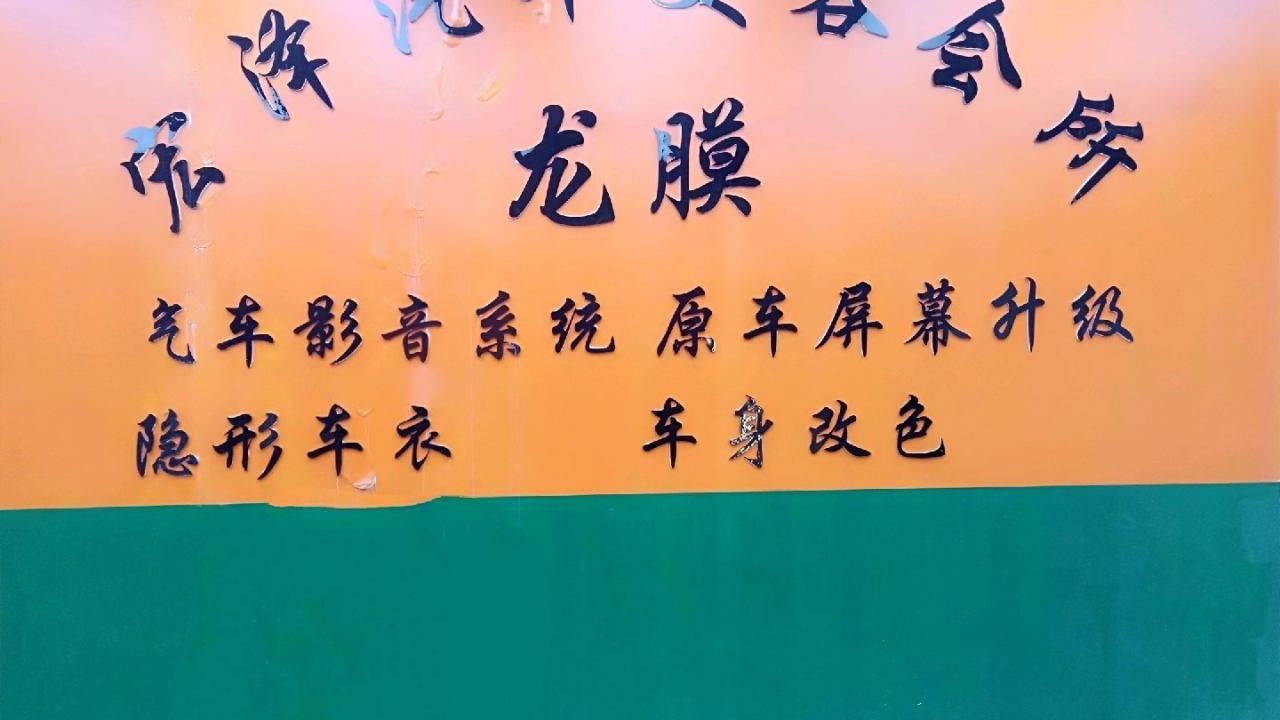 泽洗车美容会所
龙膜
汽车影音系统 原车屏幕升级
隐形车衣 车身改色